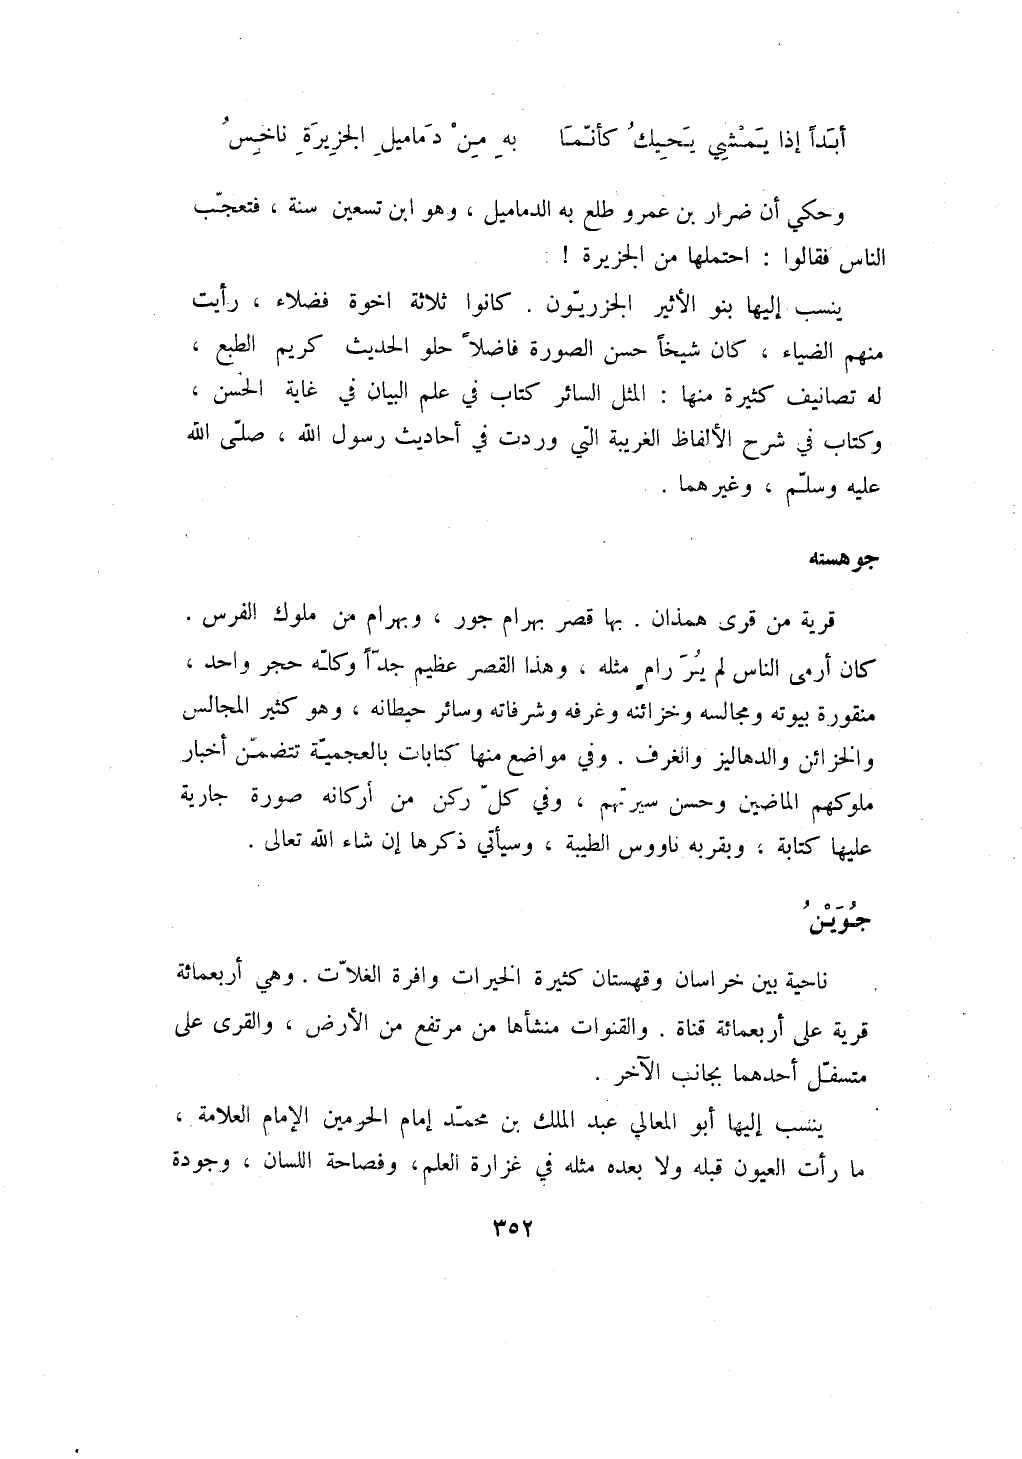 أبَداً إذا يَمْشِي يَحيكُ كأنّمَا   بهِ مِنْ دَماميلِ الجَزِيرَةِ ناخِسُ
وحكي أن ضرار بن عمرو طلع به الدماميل ، وهو ابن تسعين سنة ، فتعجّب
الناس فقالوا : احتملها من الجزيرة !
ينسب إليها بنو الأثير الجزريّون . كانوا ثلاثة اخوة فضلاء ، رأيت
منهم الضياء ، كان شيخاً حسن الصورة فاضلاً حلو الحديث كريم الطبع ،
له تصانيف كثيرة منها : المثل السائر كتاب في علم البيان في غاية الحُسن ،
وكتاب في شرح الألفاظ الغريبة التي وردت في أحاديث رسول الله ، صلّى الله
عليه وسلّم ، وغيرهما .
جوهسته
قرية من قرى همذان . بها قصر بهرام جور ، وبهرام من ملوك الفرس .
كان أرمى الناس لم يُرَ رامٍ مثله ، وهذا القصر عظيم جدّاً وكلّه حجر واحد ،
منقورة بيوته ومجالسه وخزائنه وغرفه وشرفاته وسائر حيطانه ، وهو كثير المجالس
والخزائن والدهاليز والغرف . وفي مواضع منها كتابات بالعجميّة تتضمّن أخبار
ملوكهم الماضين وحسن سيرتهم ، وفي كلّ ركن من أركانه صورة جارية
عليها كتابة ، وبقربه ناووس الطيبة ، وسيأتي ذكرها إن شاء الله تعالى .
جُوَيْنُ
ناحية بين خراسان وقهستان كثيرة الخيرات وافرة الغلاّت . وهي أربعمائة
قرية على أربعمائة قناة . والقنوات منشأها من مرتفع من الأرض ، والقرى على
متسفّل أحدهما بجانب الآخر .
ينسب إليها أبو المعالي عبد الملك بن محمّد إمام الحرمين الإمام العلامة ،
ما رأت العيون قبله ولا بعده مثله في غزارة العلم، وفصاحة اللسان ، وجودة
٣٥٢